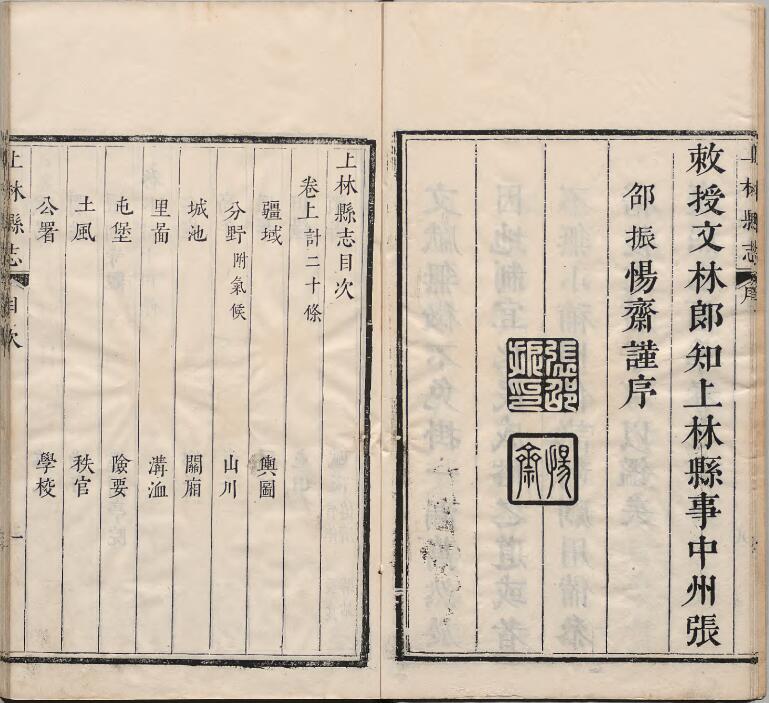 上林縣志 序
敕授文林郎知上林縣事中州張
邵振惕齋謹序
張邵振印
惕齋
上林縣志目次
卷上計二十條
疆域 輿圖
分野附氣候 山川
城池 關廂
里啚 溝洫
屯堡 險要
土風 秩官
公署 學校
上林縣志 目次 一